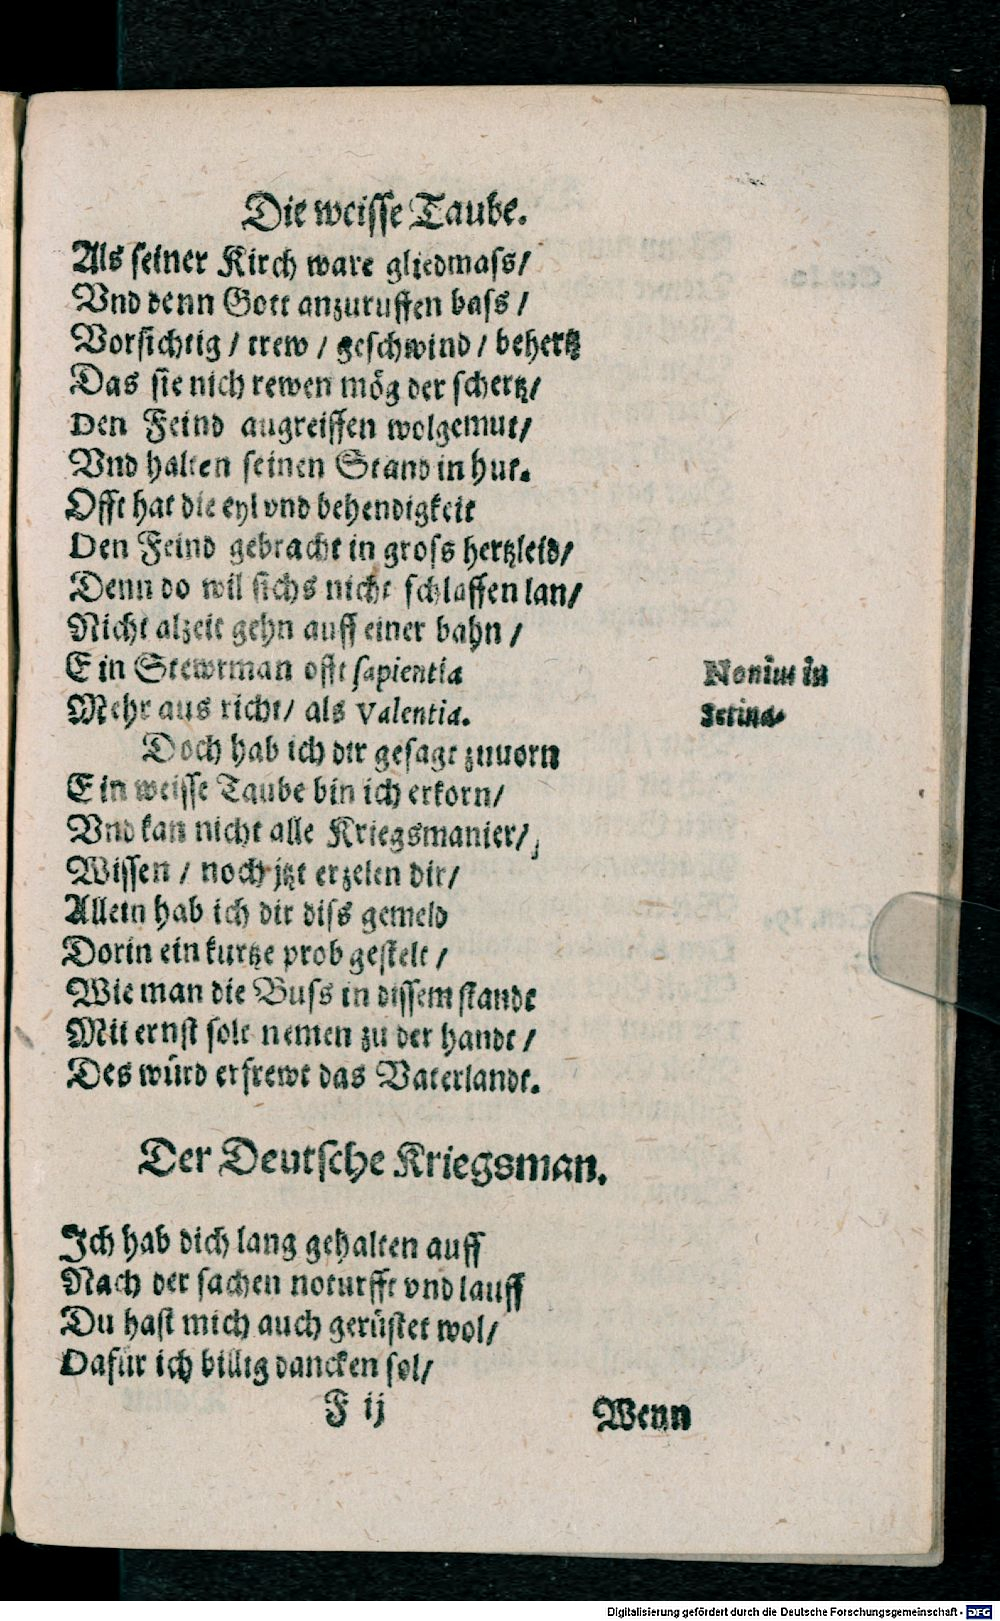 Die weisse Taube.
Als seiner Kirch ware gliedmass/
Vnd denn Gott anzuruffen bass /
Vorsichtig / trew / geschwind / behertz
Das sie nich rewen mög der schertz/
Den Feind augreiffen wolgemut/
Vnd halten seinen Stand in hut.
Offt hat die eyl vnd behendigkeit
Den Feind gebracht in gross hertzleid/
Denn do wil sichs nicht schlaffen lan/
Nicht alzeit gehn auff einer bahn /
Ein Stewrman offt sapientia
Nonius in
Mehr aus richt/ als Valentia.
Doch hab ich dir gesagt zuuorn
Ein weisse Taube bin ich erkorn/
Vnd kan nicht alle Kriegsmanier/
Wissen / noch jtzt erzelen dir/
Allein hab ich dir diss gemeld
Dorin ein kurtze prob gestelt /
Wie man die Buss in dissem stande
Mit ernst solt nemen zu der handt /
Des würd erfrewt das Vaterlandt.
Der Deutsche Kriegsman.
Ich hab dich lang gehalten auff
Nach der sachen noturfft vnd lauff
Du hast mich auch gerüstet wol/
Dafür ich billig dancken sol/
F ij
Wenn
Digitalisierung gefördert durch die Deutsche Forschungsgemeinschaft - DFG